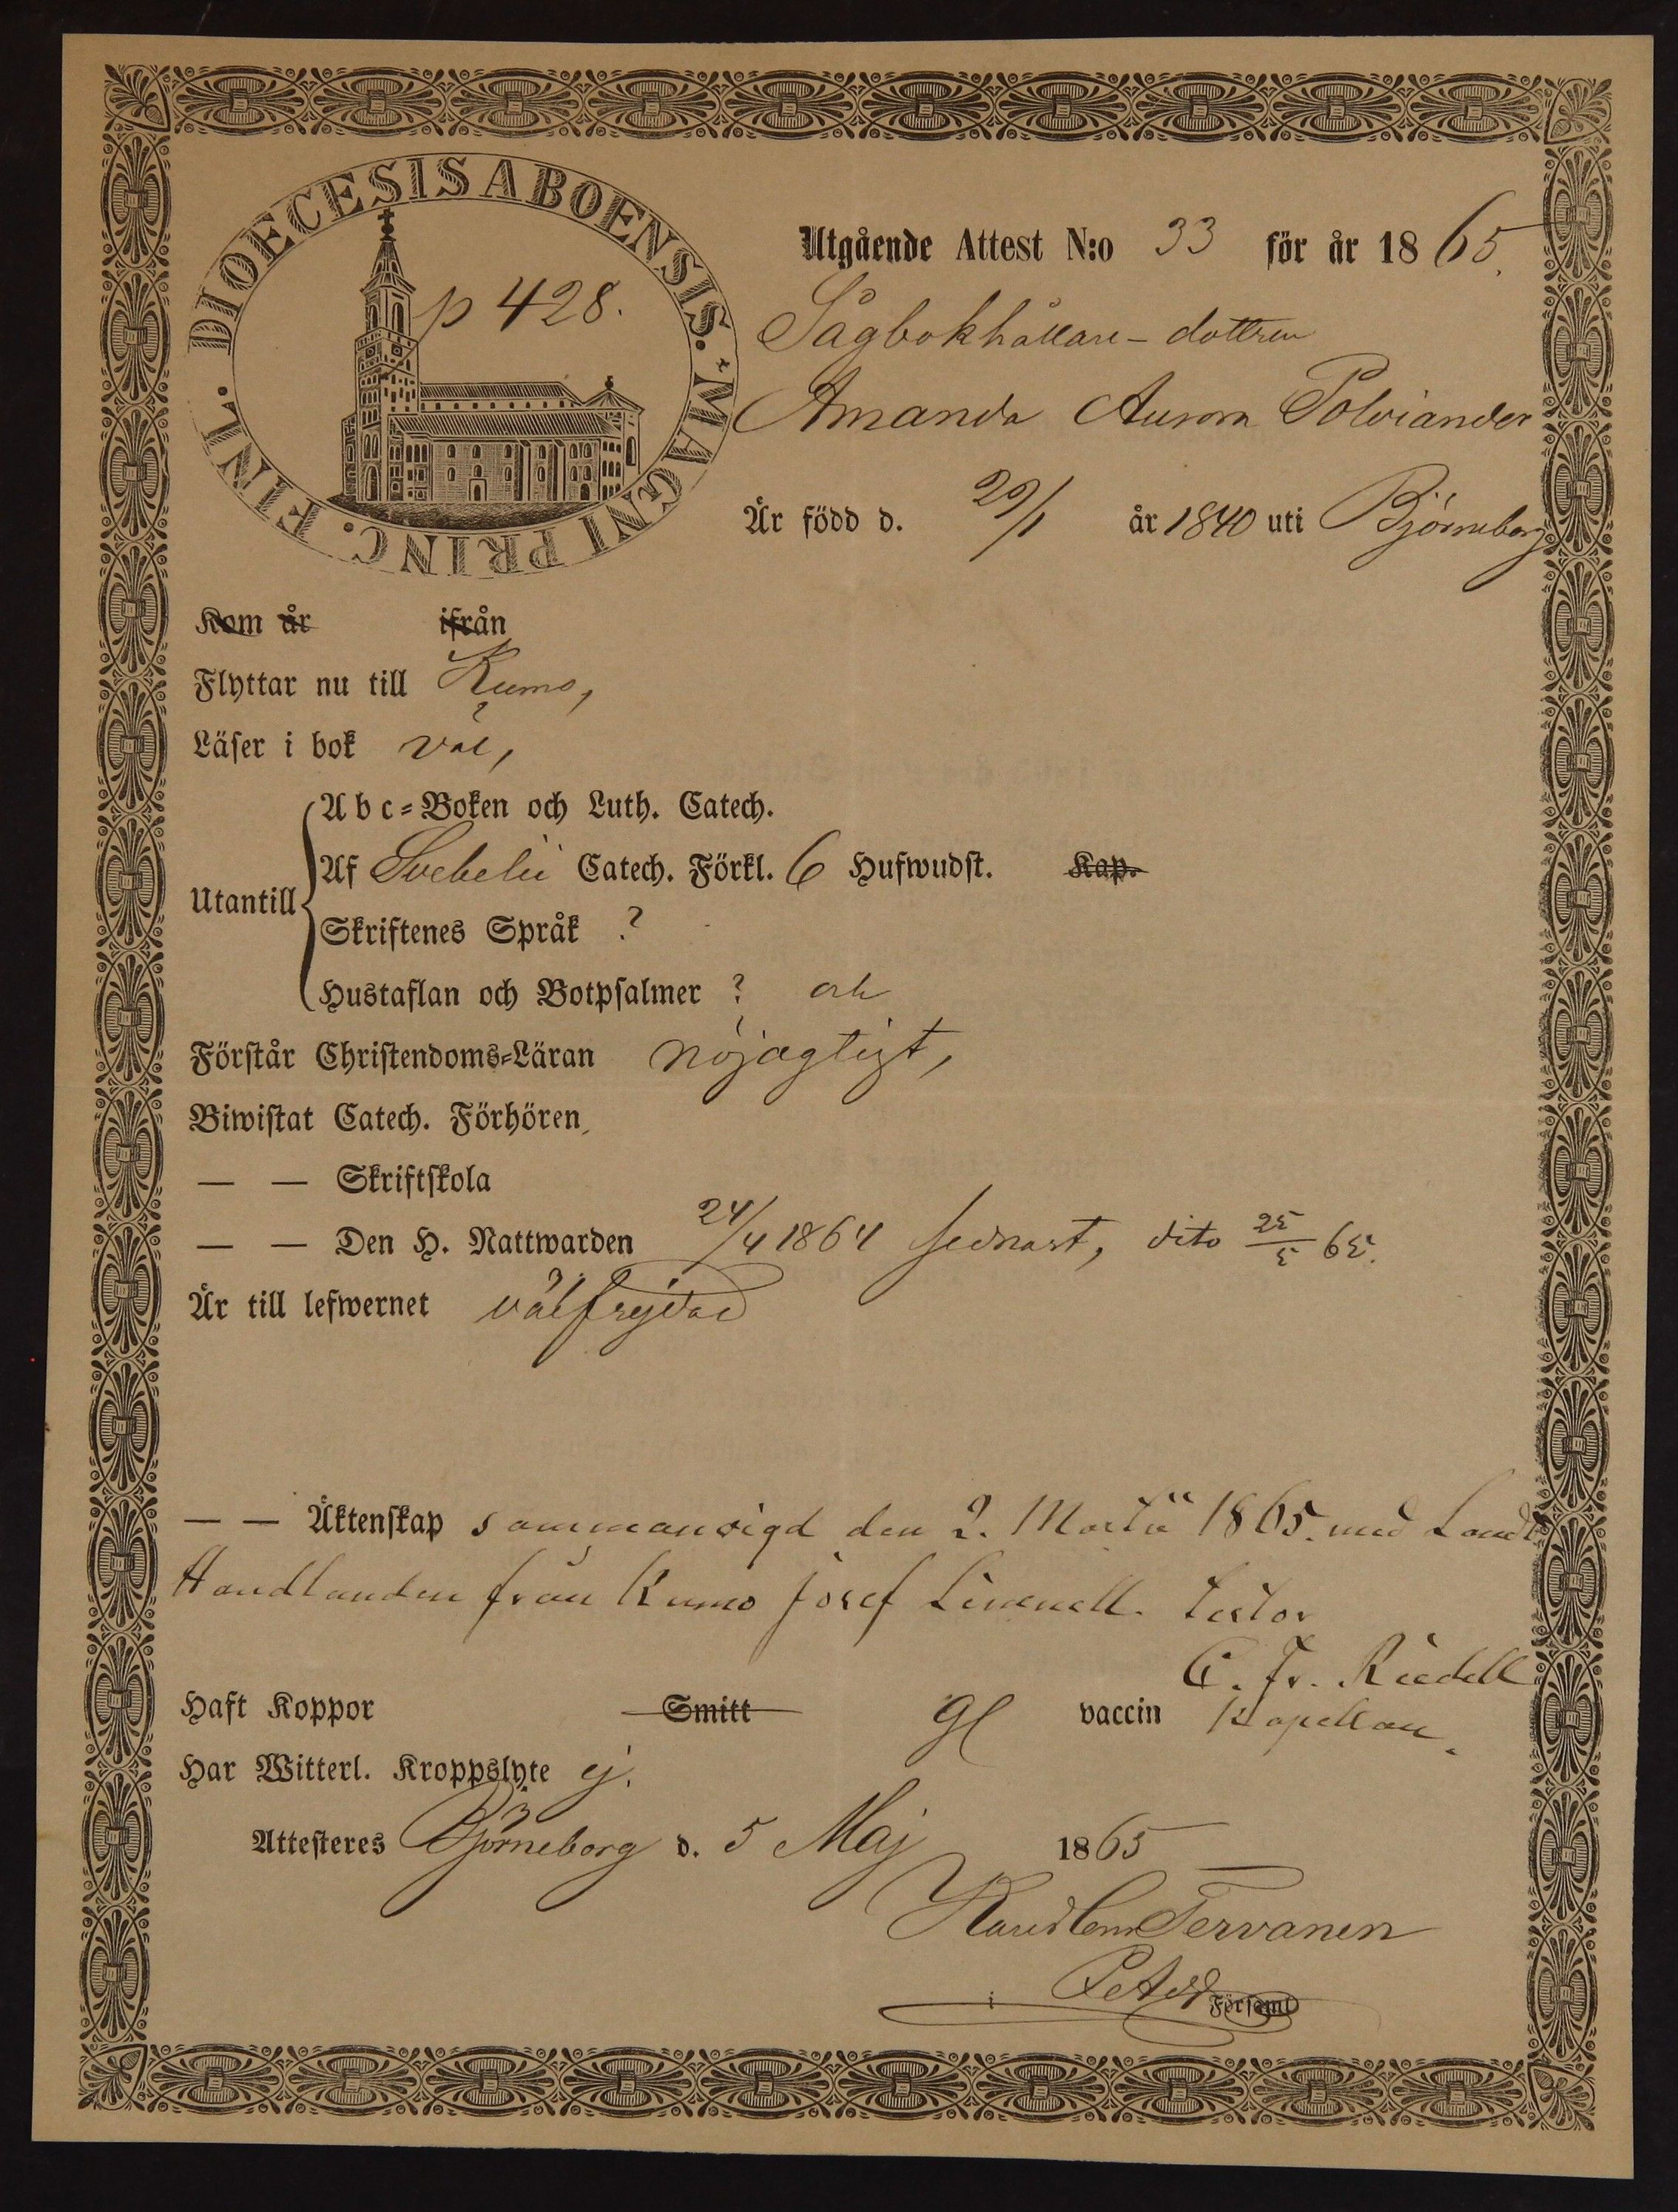 DIOECESIS ABOENSIS. * MAGNI PRINC. FINL.
p 428.
Utgående Attest N:o 33 för år 1865.
Sågbokhållare-dottren
Amanda Aurora Polviander
Är född d. 29/1 år 1840 uti Björneborg
Kom år ifrån
Flyttar nu till Kumo,
Läser i bok väl,
Utantill
Abc-Boken och Luth. Catech.
Af Svebelii Catech. Förkl. 6 Hufwudst. Kap.
Skriftenes Språk ?
Hustaflan och Botpsalmer ? och
Förstår Christendoms-Läran nöjagtigt,
Biwistat Catech. Förhören,
— — Skriftskola
— — Den H. Nattwarden 24/4 1864 sednast, dito 25/5 65.
Är till lefwernet välfrejdad
— — Äktenskap sammanvigd den 2. Martii 1865. med Landt
Handlanden från Kumo Josef
C. Fr. Riedell
Kapellan.
Haft Koppor Smitt vaccin
Har Witterl. Kroppslyte ej.
Attesteres Björneborg d. 5 Maj 1865
Tervanen
i Församl